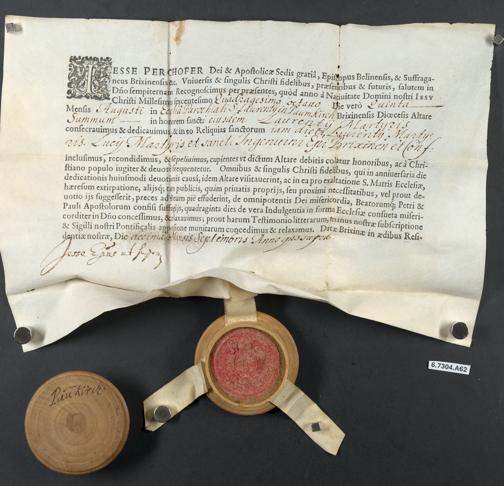 IESSE PERCHOFER Dei & Apostolicæ Sedis gratiâ, Episcopus Belinensis, & Suffraga-
neus Brixinensis &c. Vniversis & singulis Christi fidelibus, præsentibus & futuris, salutem in
Dño sempiternam. Recognoscimus per præsentes, quòd anno à Nativitate Domini nostri IESV
Christi Millesimo sexcentesimo Quadragesimo octavo Die verò Quinta
Mensis Augusti in Ecclia Parochiali S. Laurentij Brixinensis Diœcesis Altare
Summum in honorem sancti eiusdem Laurentij Martyris
consecrauimus & dedicauimus, & in eo Reliquias sanctorum iam dicti Laurentij Marty
ris, Lucij Martyris et sancti Ingenuini Epi Brixinen et Conf.
inclusimus, recondidimus, & sepeliuimus, cupientes vt dictum Altare debitis colatur honoribus, ac à Chri-
stiano populo iugiter & deuotè frequentetur. Omnibus & singulis Christi fidelibus, qui in anniuersaria die
dedicationis huiusmodi deuotionis causâ, idem Altare visitauerint, ac in ea pro exaltatione S. Matris Ecclesiæ,
hæresum extirpatione, alijsq; tam publicis, quàm priuatis proprijs, seu proximi necessitatibus, vel prout de-
uotio ijs suggesserit, preces ad Deum piè effuderint, de omnipotentis Dei misericordia, Beatorumq; Petri &
Pauli Apostolorum consisi suffragijs, quadraginta dies de vera Indulgentia in forma Ecclesiæ consueta miseri-
corditer in Dño concessimus, & donauimus; prout harum Testimonio litterarum, manus nostræ subscriptione
& Sigilli nostri Pontificalis appensione munitarum concedimus & relaxamus. Datæ Brixinæ in ædibus Resi-
dentiæ nostræ, Die decima mensis Septembris Anno quo supra
Jesse Epus
6.7304.A62